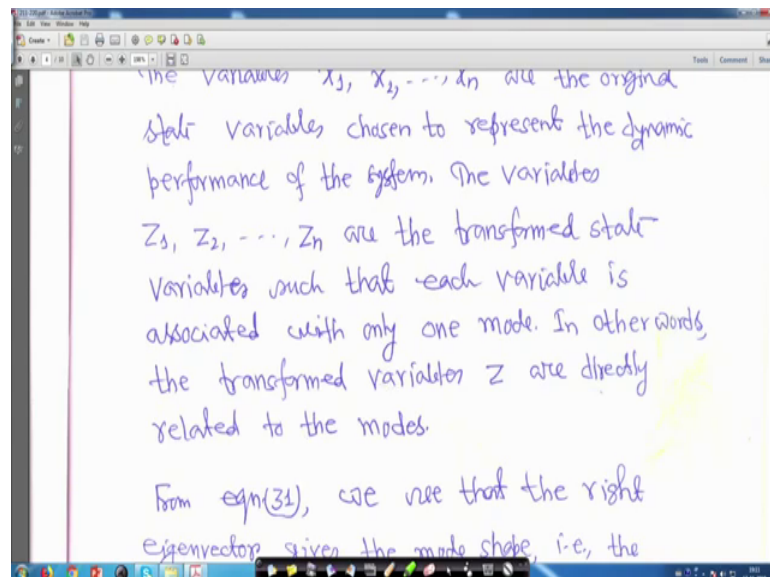 211-220.pdf - Adobe Acrobat Pro
File Edit View Window Help
Create
Tools Comment
The variables x1, x2, ---, xn are the original
state variables chosen to represent the dynamic
performance of the system. The variables
Z1, Z2, ---, Zn are the transformed state
variables such that each variable is
associated with only one mode. In other words,
the transformed variables Z are directly
related to the modes.
From eqn(31), we see that the right
eigenvector gives the mode shape, i.e., the